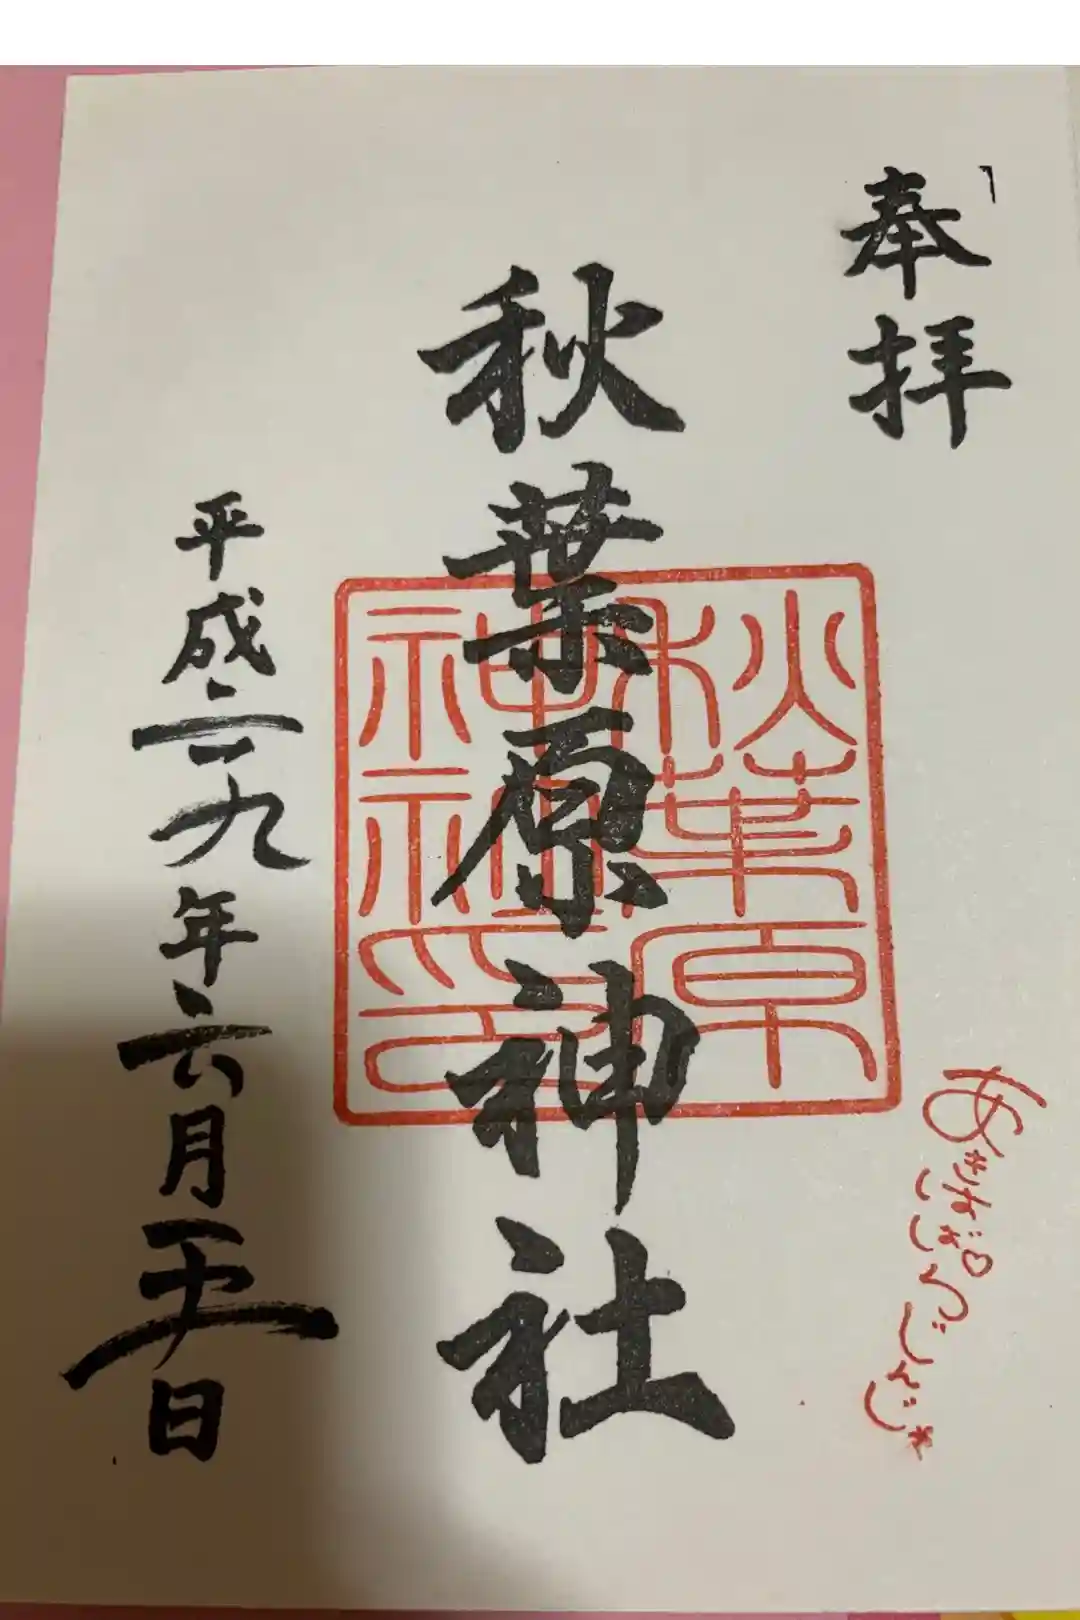 奉拝
秋葉原神社
秋葉原神社印
あきはばらじんじゃ
平成二九年六月 日